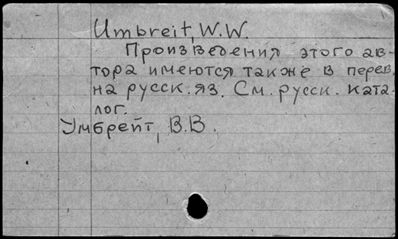 Umbreit, W.W.
Произведения этого ав-
тора имеются также в перев.
на русск. яз. См. русск. ката-
лог.
Умбрейт, В.В.